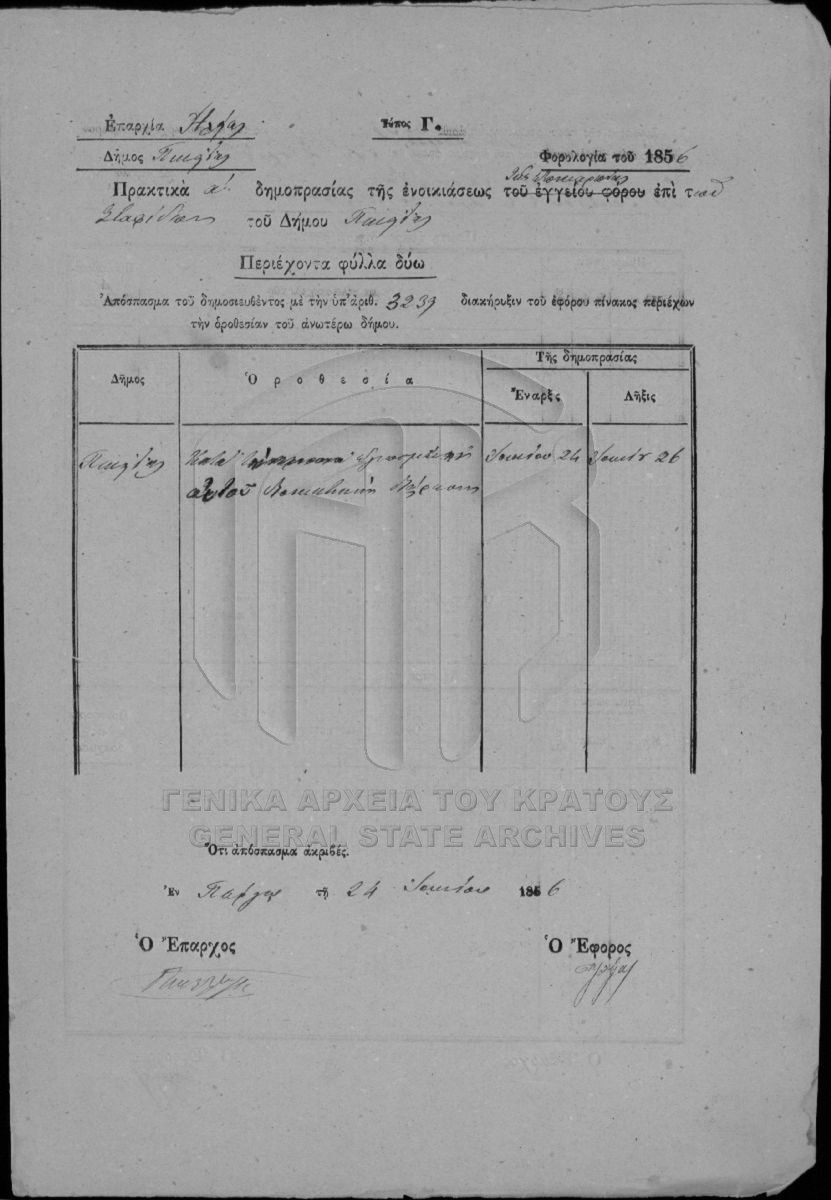 Ἐπαρχία Ἠλείας Τύπος Γ.
Δῆμος Φορολογία τοῦ 1856
Πρακτικὰ α. δημοπρασίας τῆς ἐνοικιάσεως τοῦ ἐγγείου φόρου ἐπὶ τοῦ
Σταφίδων τοῦ Δήμου
Περιέχοντα φύλλα δύω
Ἀπόσπασμα τοῦ δημοσιευθέντος μὲ τὴν ὑπ' ἀριθ. 3239 διακήρυξιν τοῦ ἐφόρου πίνακος περιέχων
τὴν ὁροθεσίαν τοῦ ἀνωτέρω δήμου.
Τῆς δημοπρασίας
Δῆμος Ὁροθεσία Ἔναρξς Λῆξις
Κατὰ Ἰουνίου 24 Ἰουνίου 26
αὐτοῦ
ΓΕΝΙΚΑ ΑΡΧΕΙΑ ΤΟΥ ΚΡΑΤΟΥΣ
GENERAL STATE ARCHIVES
Ὅτι ἀπόσπασμα ἀκριβές.
Ἐν Πύργῳ τῇ 24 Ἰουνίου 1856
Ὁ Ἔπαρχος Ὁ Ἔφορος